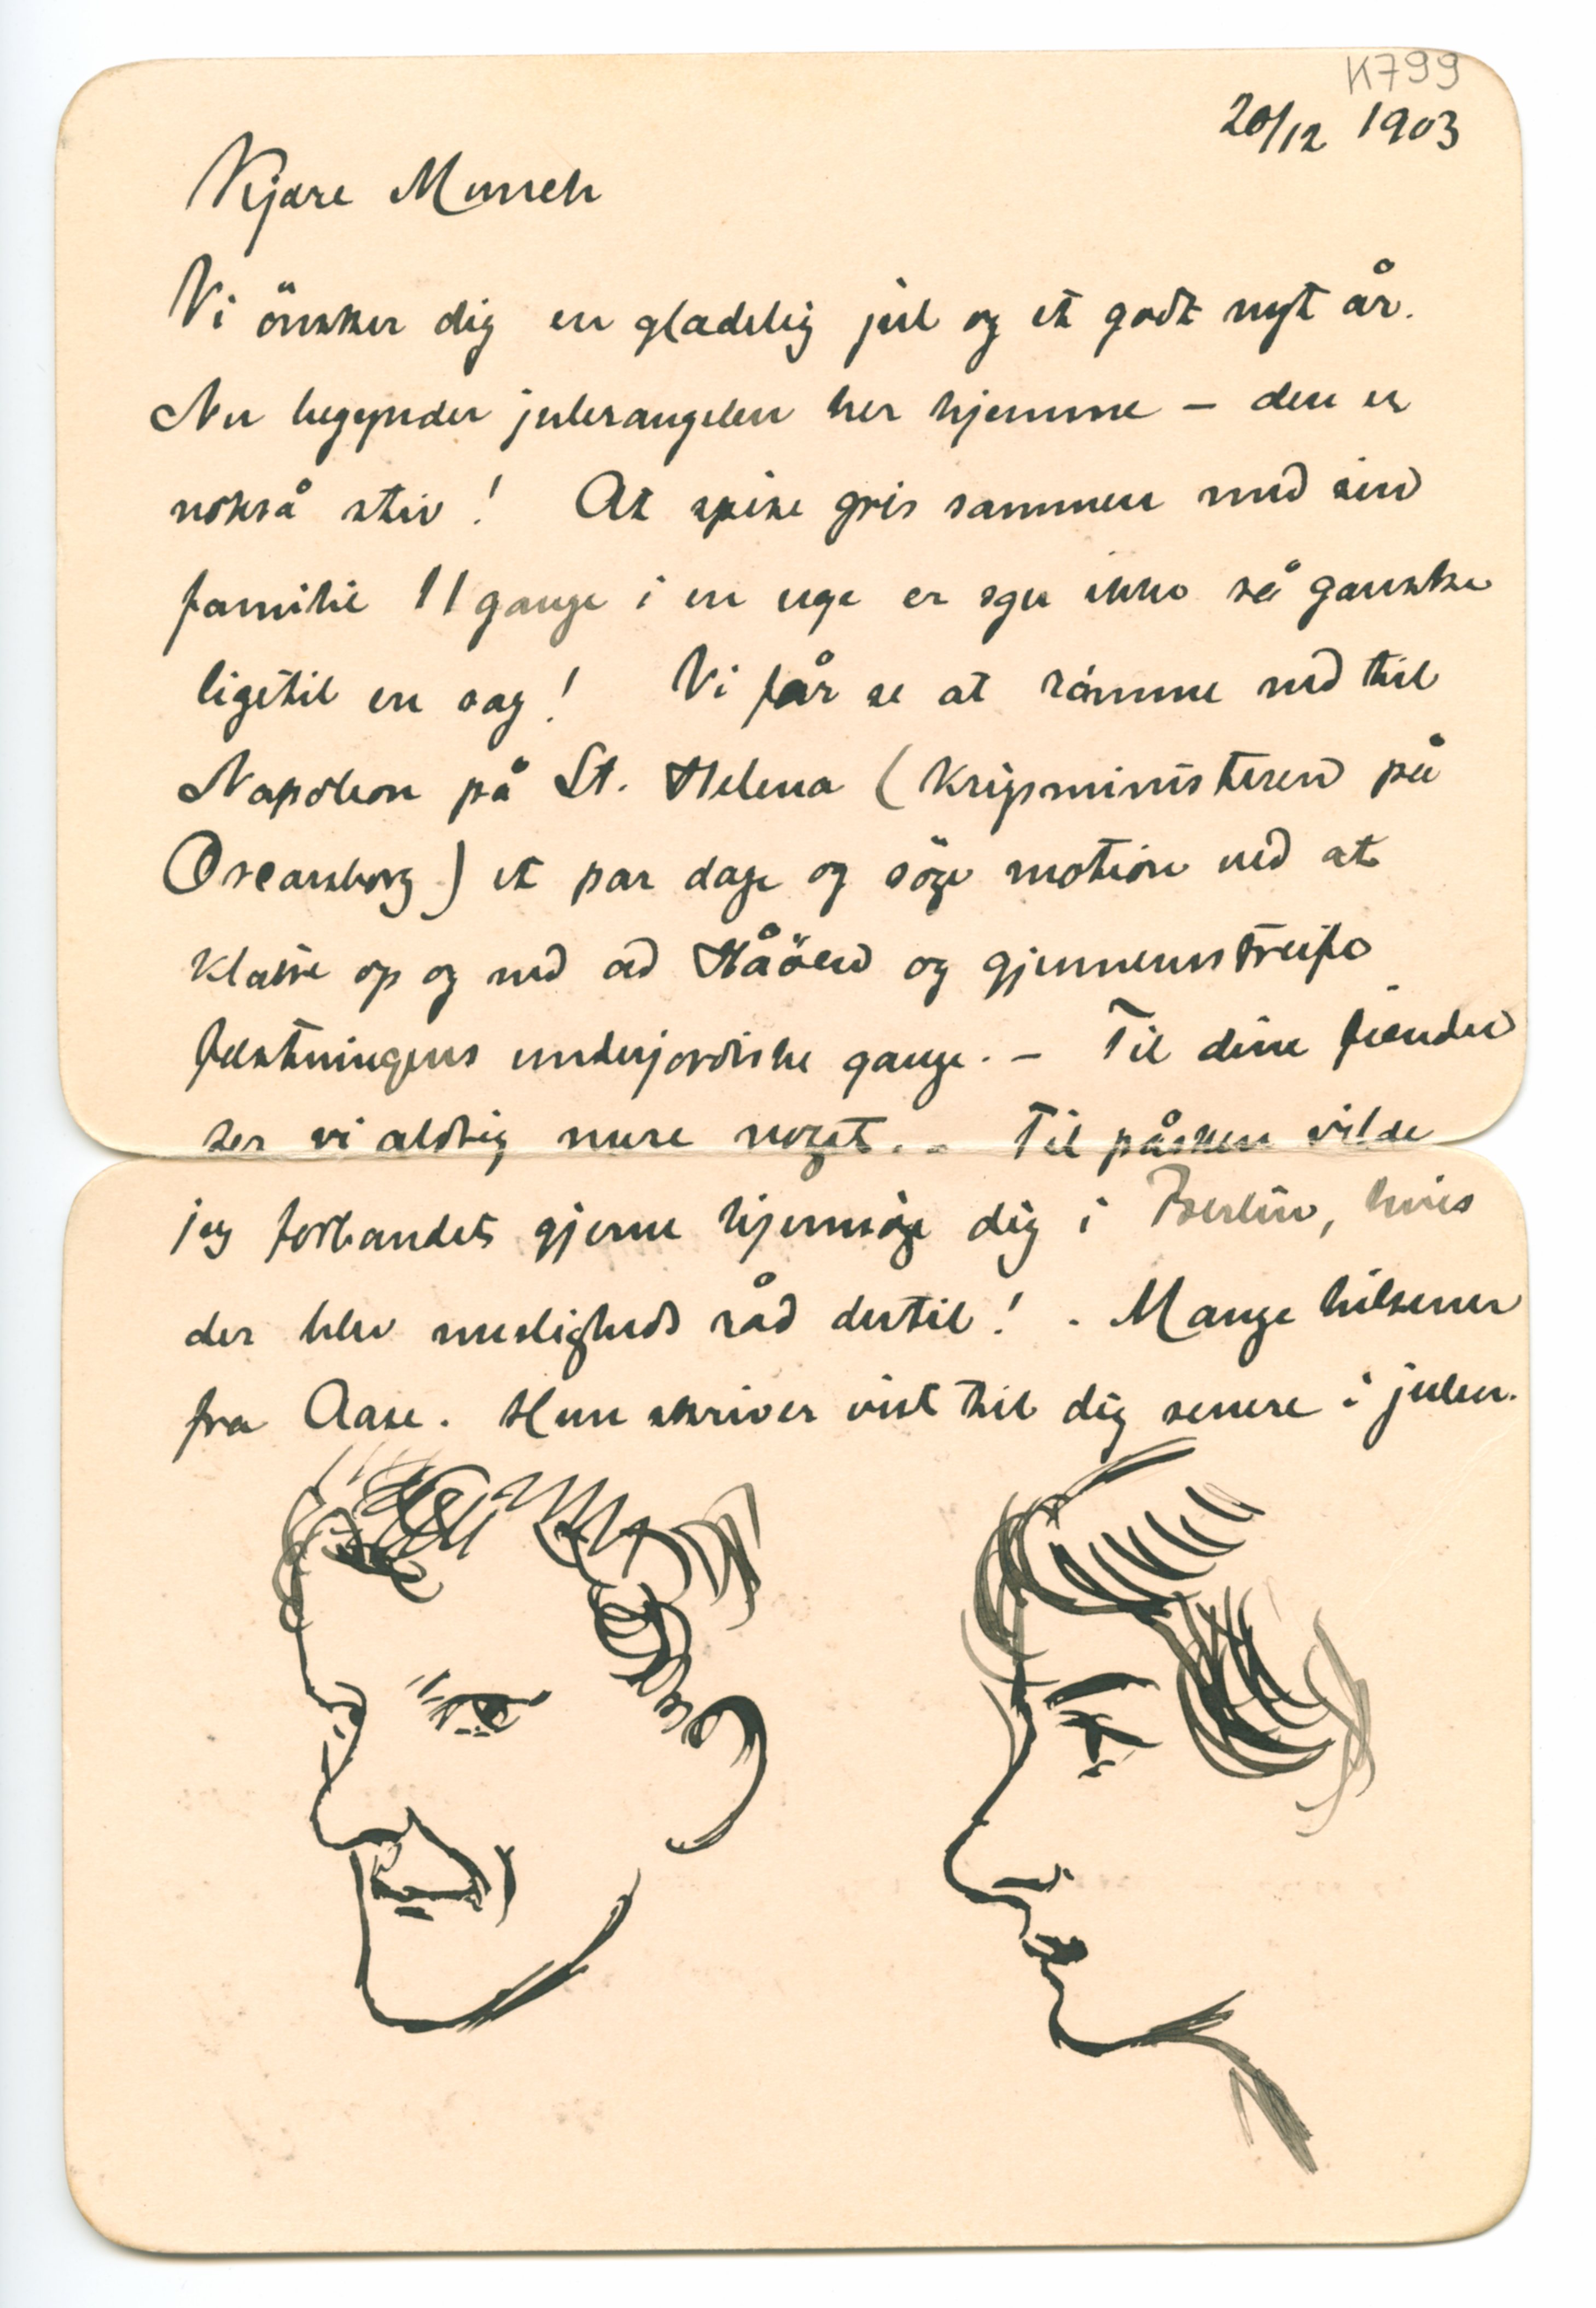 K799
20/12 1903
Kjære Munch
Vi önsker dig en glædelig jul og et godt nyt år.
Nu begynder julerangelen her hjemme – den er
nokså stiv! At spise gris sammen med sin
familie 11 gange i en uge er sgu ikke så ganske
ligetil en sag! Vi får se at römme ned til
Napoleon på St. Helena (Krigsministeren på
Oscarsborg) et par dage og söge motion ved at
klatre op og ned ad Håöen og gjennemstreife
festningens underjordiske gange. – Til dine fiender
ser vi aldrig mere noget. – Til påsken vilde
jeg forbandet gjerne hjemsöge dig i Berlin, hvis
der blev menligheds råd dertil! . Mange hilsener
fra Aase. Hun skriver vist til dig senere i julen.